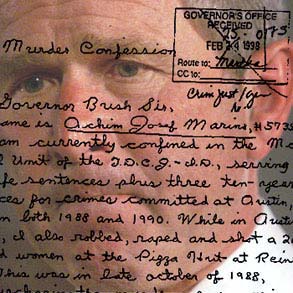 GOVERNOR'S OFFICE
RECEIVED
FEB 24 1998
Route to:
CC to:
Murder Confession
Governor Bush Sir,
ame is Achim Josef Marino, #5735
am currently confined in the Mc
2 Unit of the T.D.C.J.-I.D., serving
fe sentences plus three ten-year
ces for crimes committed at Austin,
n both 1988 and 1990. While in Austi
, I also robbed, raped and shot a 20
d women at the Pizza Hut at Rein
This was in late october of 1988,